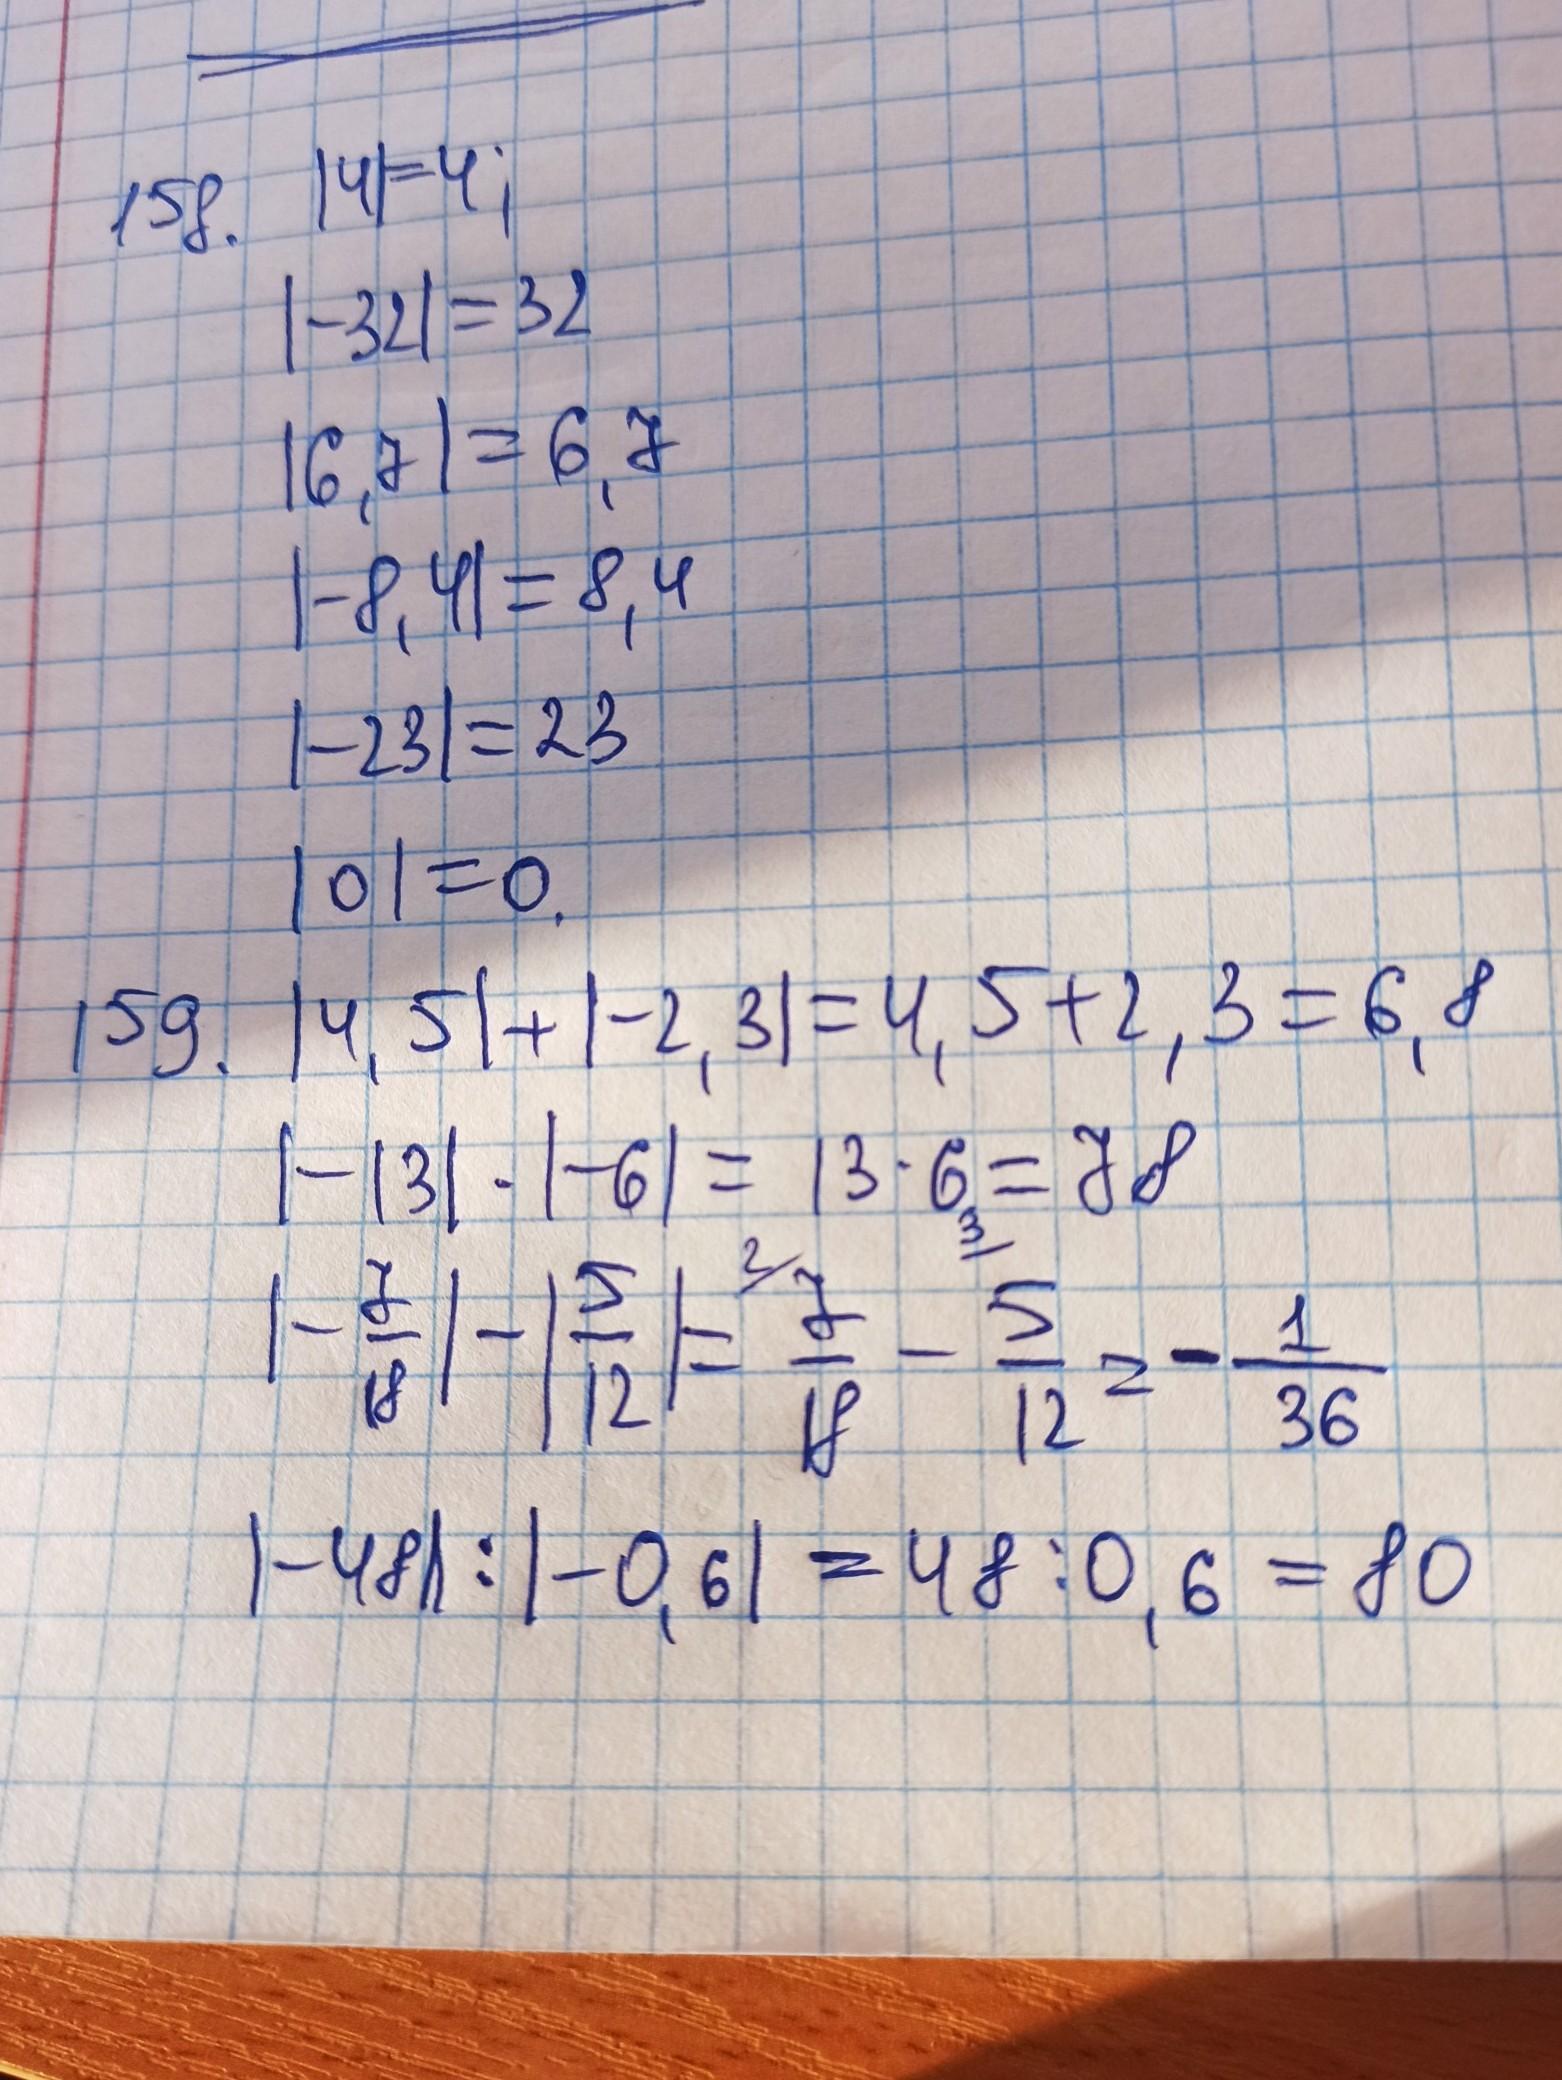 158. |4|=4;
|-32|=32
|6,7|=6,7
|-8,4|=8,4
|-23|=23
|0|=0.
159. |4,5|+|-2,3|=4,5+2,3=6,8
|-13|·|-6|=13·6=78
|-7/18|-|5/12|= 2/ 7/18 - 3/ 5/12 = -1/36
|-48|:|-0,6|=48:0,6=80